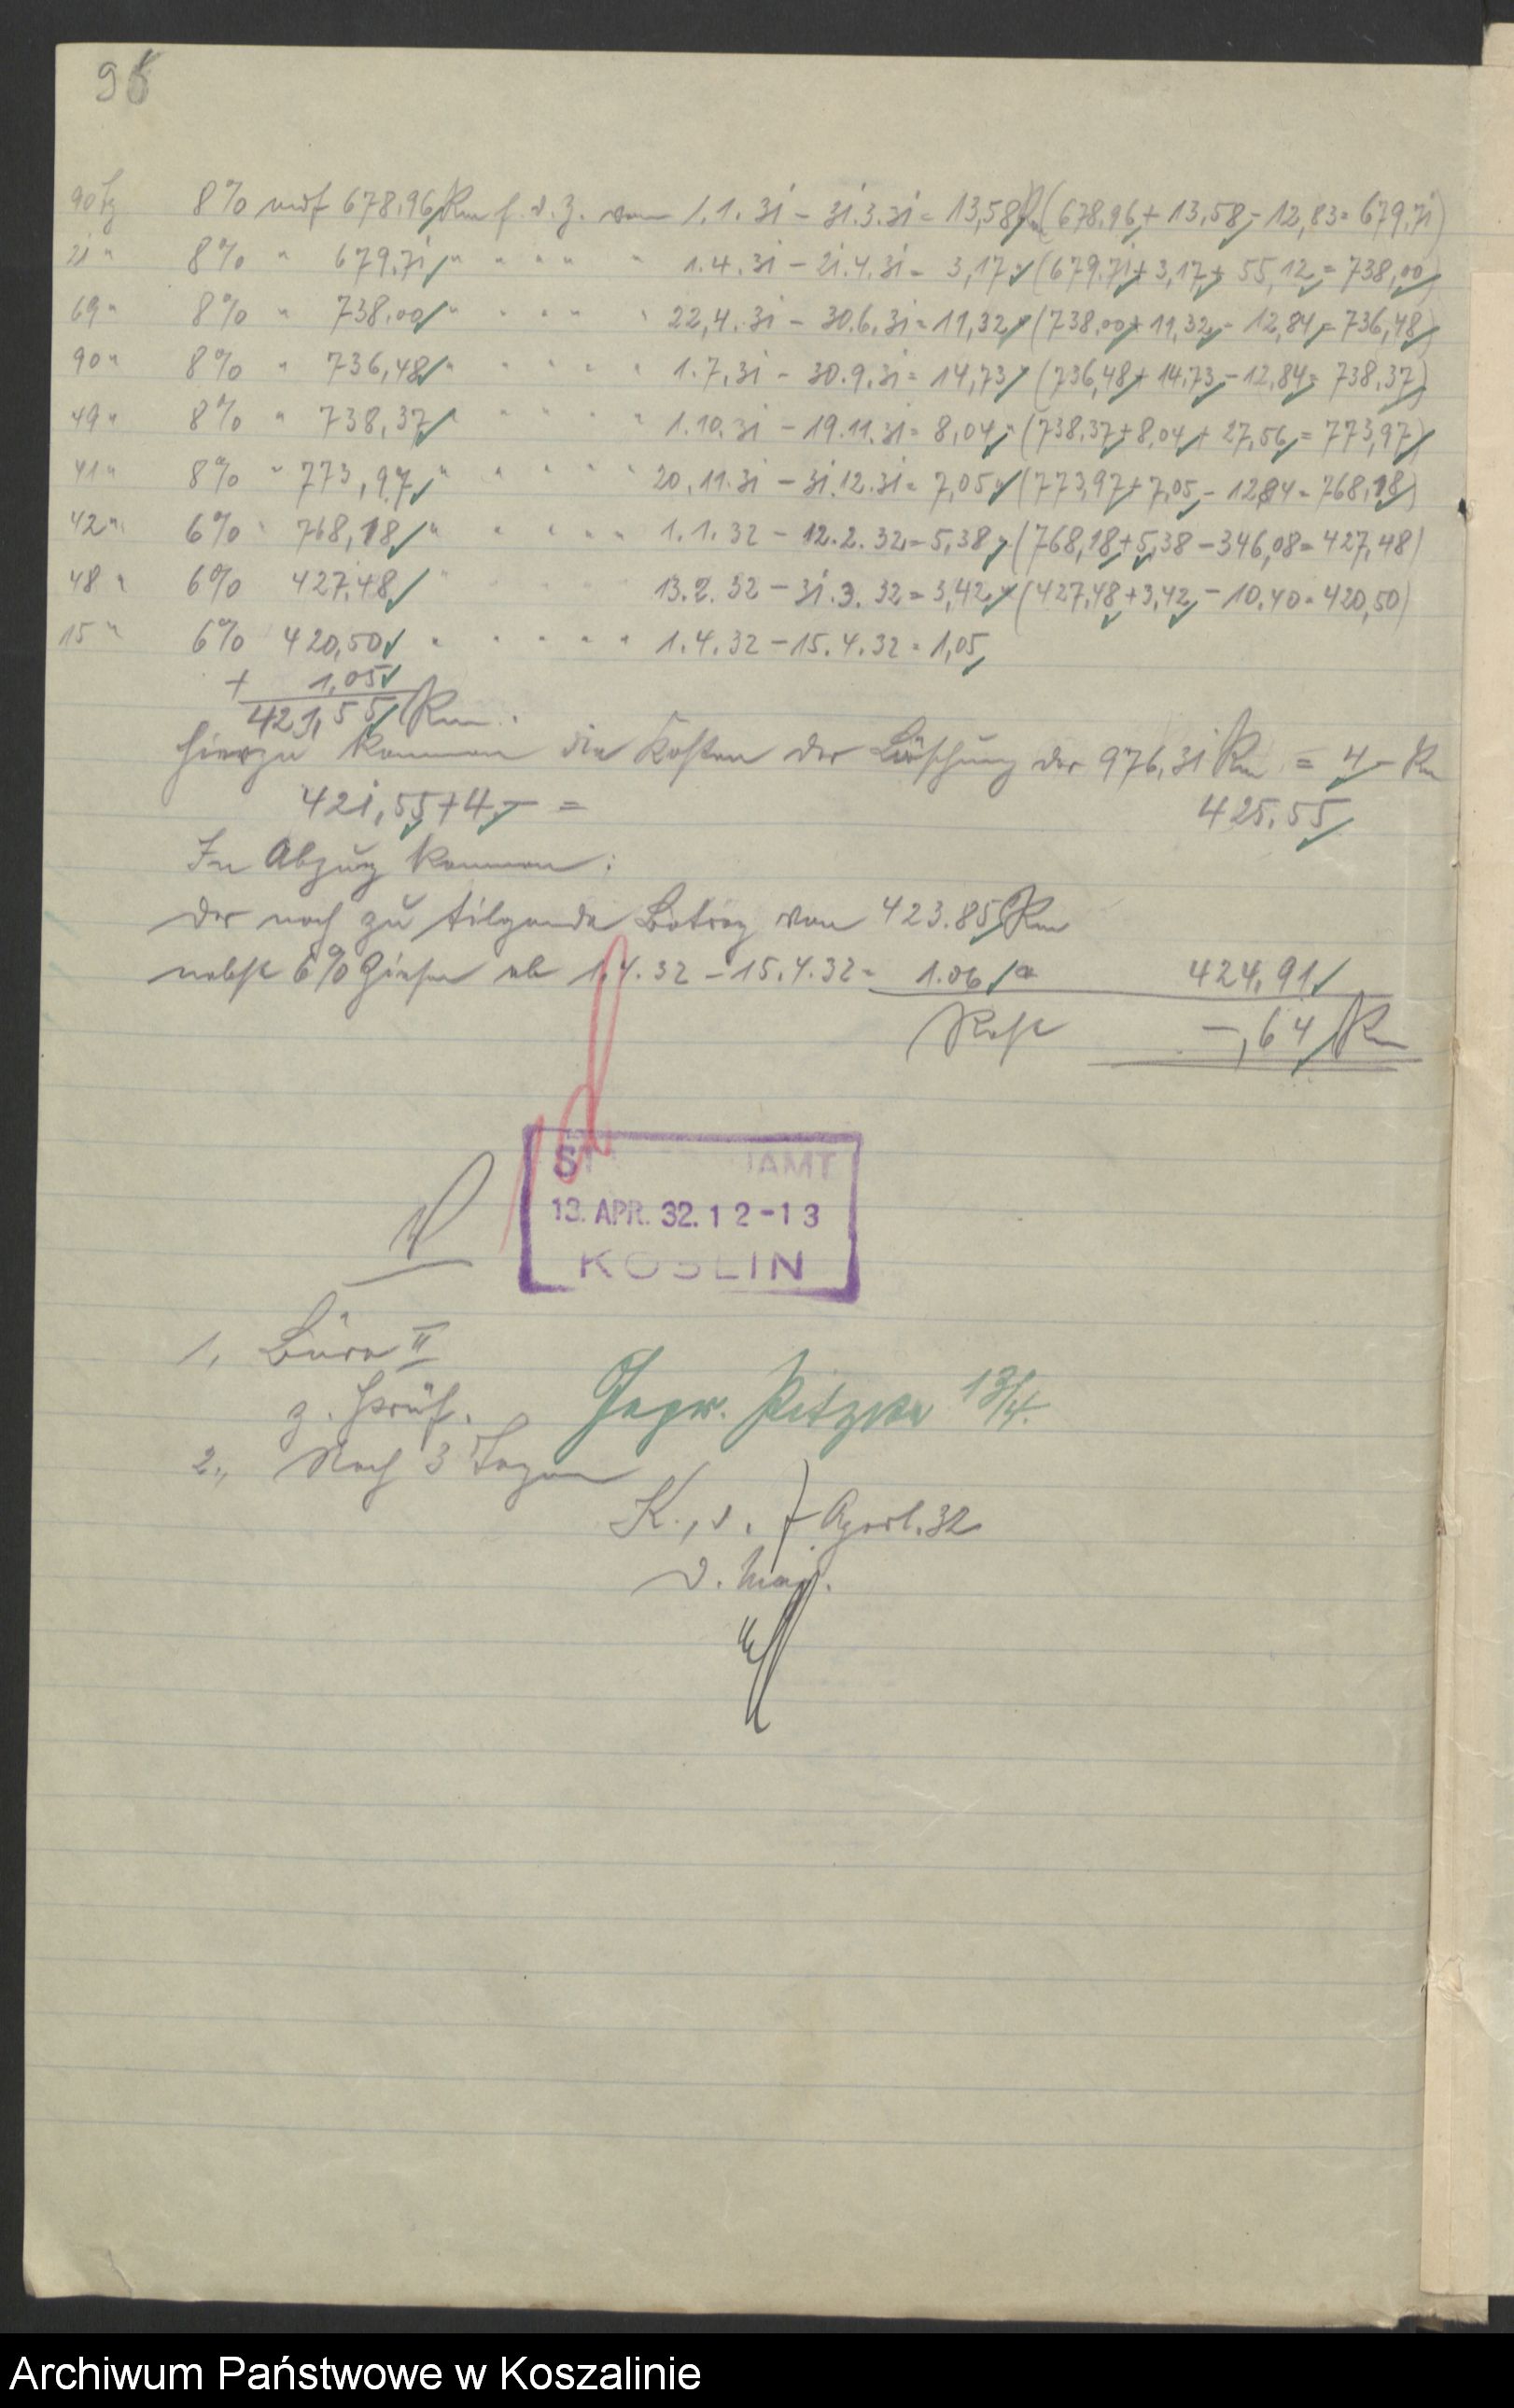 95
90 Tg 8% auf 678.96 Rm f. d. Z. vom 1.1.31 – 31.3.31 = 13,58 Rm (678.96 + 13.58 – 12,83 = 679.71)
21 " 8% " 679.71 " " " " " 1.4.31 – 21.4.31 = 3,17 " (679.71 + 3,17 + 55,12 = 738,00)
69 " 8% " 738.00 " " " " " 22.4.31 – 30.6.31 = 11,32 " (738.00 + 11,32 – 12,84 = 736,48)
90 " 8% " 736,48 " " " " " 1.7.31 – 30.9.31 = 14,73 " (736,48 + 14.73 – 12,84 = 738,37)
49 " 8% " 738,37 " " " " " 1.10.31 – 19.11.31 = 8,04 " (738.37 + 8,04 + 27,56 = 773,97)
41 " 8% " 773,97 " " " " " 20.11.31 – 31.12.31 = 7,05 " (773,97 + 7,05 – 12,84 = 768,18)
42 " 6% " 768,18 " " " " " 1.1.32 – 12.2.32 = 5,38 " (768,18 + 5,38 – 346,08 = 427,48)
48 " 6% 427.48 " " " " " 13.2.32 – 31.3.32 = 3,42 " (427,48 + 3,42 – 10.40 = 420,50)
15 " 6% 420,50 " " " " " 1.4.32 – 15.4.32 = 1,05
+ 1,05
421,55 Rm.
Hierzu kommen die Kosten der Löschung der 976,31 Rm = 4,– Rm
421,55 + 4,– = 425.55
In Abzug kommen:
der noch zu tilgende Betrag von 423.85 Rm
nebst 6% Zinsen ab 1.4.32 – 15.4.32 = 1.06 " 424,91
Rest –,64 Rm
ST AMT
13. APR. 32. 12-13
KÖSLIN
1, Büro II
z. Prüf. Gepr. 13/4.
2., Nach 3 Tagen
K., d. April. 32
D. Mag.
Archiwum Państwowe w Koszalinie